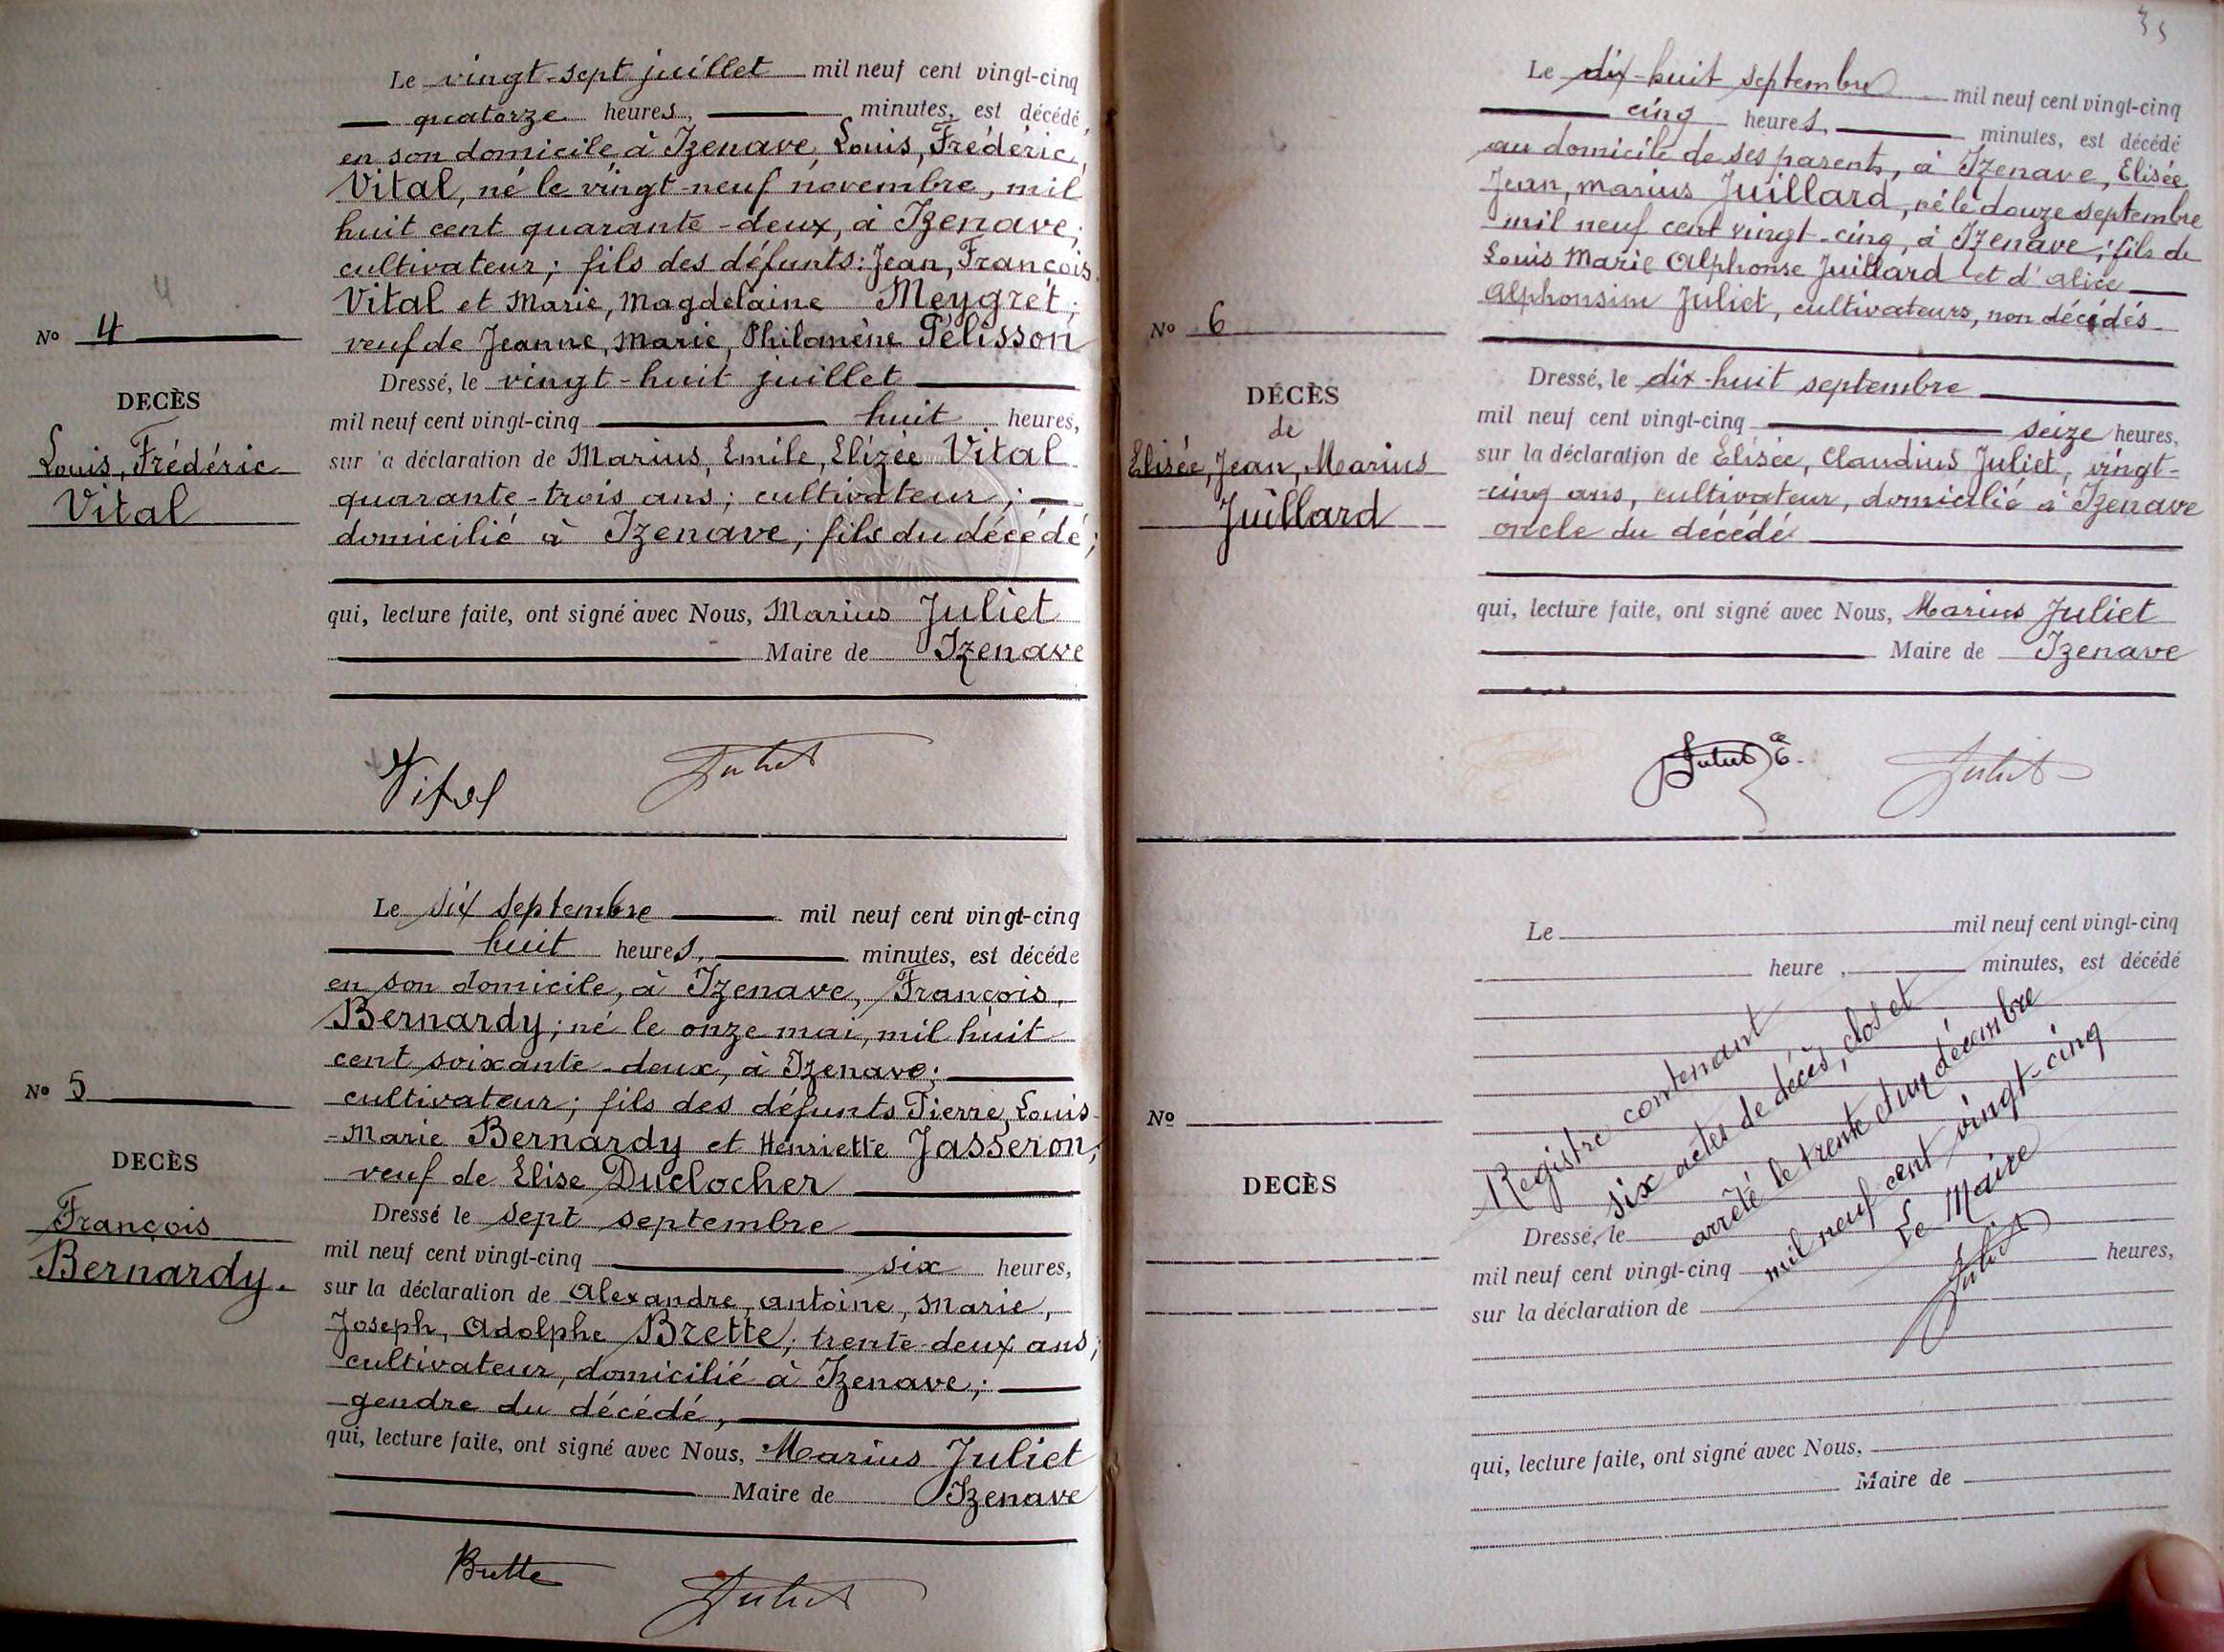 Le vingt-sept juillet mil neuf cent vingt-cinq
quatorze heures, minutes, est décédé,
en son domicile à Izenave, Louis, Frédéric,
Vital, né le vingt-neuf novembre, mil
huit cent quarante-deux, à Izenave;
cultivateur; fils des défunts: Jean, François
Vital et Marie, Magdelaine Meygret;
veuf de Jeanne, Marie, Philomène Pélisson
Nº 4
DECÈS
Louis, Frédéric
Vital
Dressé, le vingt-huit juillet
mil neuf cent vingt-cinq huit heures,
sur a déclaration de Marius, Emile, Elizée Vital
quarante-trois ans; cultivateur;
domicilié à Izenave; fils du décédé;
qui, lecture faite, ont signé avec Nous, Marius Juliet
Maire de Izenave
Vital Juliet
Le six septembre mil neuf cent vingt-cinq
huit heures, minutes, est décédé
en son domicile, à Izenave, François,
Bernardy; né le onze mai, mil huit
cent soixante-deux, à Izenave;
cultivateur; fils des défunts Pierre, Louis-
-Marie Bernardy et Henriette Jasseron;
veuf de Elise Duclocher
Nº 5
DECÈS
François
Bernardy.
Dressé le sept septembre
mil neuf cent vingt-cinq six heures,
sur la déclaration de Alexandre, Antoine, Marie,
Joseph, Adolphe Brette; trente-deux ans;
cultivateur, domicilié à Izenave;
gendre du décédé,
qui, lecture faite, ont signé avec Nous, Marius Juliet
Maire de Izenave
Brette Juliet
35
Le dix-huit septembre mil neuf cent vingt-cinq
cinq heures, minutes, est décédé
au domicile de ses parents, à Izenave, Elisée,
Jean, Marius Juillard, né le douze septembre
mil neuf cent vingt-cinq, à Izenave; fils de
Louis Marie Alphonse Juillard et d'Alice
Alphonsine Juliet, cultivateurs, non décédés
Nº 6
DÉCÈS
de
Elisée, Jean, Marius
Juillard
Dressé, le dix-huit septembre
mil neuf cent vingt-cinq seize heures,
sur la déclaration de Elisée, Claudius Juliet, vingt-
-cinq ans, cultivateur, domicilié à Izenave
oncle du décédé
qui, lecture faite, ont signé avec Nous, Marius Juliet
Maire de Izenave
Juliet Juliet
Le mil neuf cent vingt-cinq
heure , minutes, est décédé
Nº
DECÈS
Registre contenant
six actes de décès, clos et
arrêté le trente et un décembre
mil neuf cent vingt-cinq
Le Maire
Juliet
Dressé, le
mil neuf cent vingt-cinq heures,
sur la déclaration de
qui, lecture faite, ont signé avec Nous,
Maire de